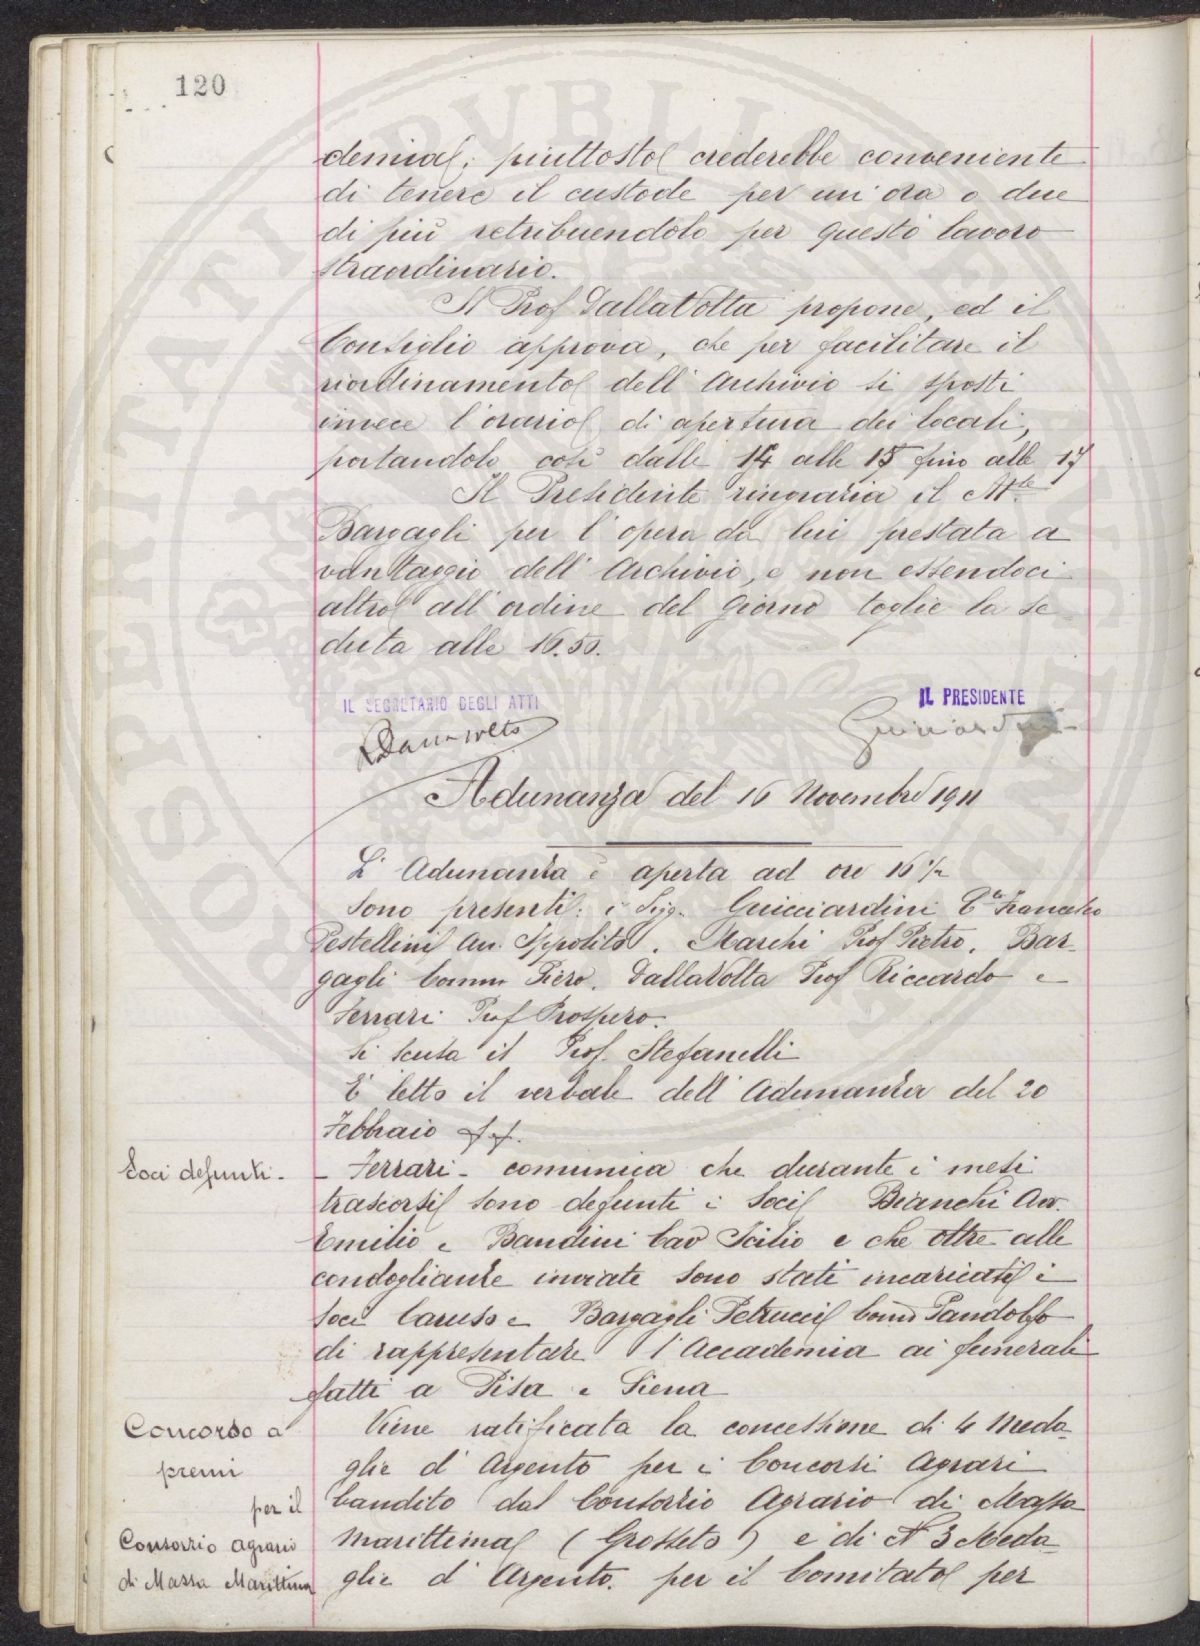 120
demia; piuttosto crederebbe conveniente
di tenere il custode per un'ora o due
di più retribuendolo per questo lavoro
straordinario.
Il Prof Dalla Volta propone, ed il
Consiglio approva, che per facilitare il
riordinamento dell'Archivio si sposti
invece l'orario di apertura dei locali,
portandolo così dalle 14 alle 15 fino alle 17
Il Presidente ringrazia il Mse
Bargagli per l'opera da lui prestata a
vantaggio dell'Archivio, e non essendoci
altro all'ordine del giorno toglie la se
duta alle 16.50.
IL SEGRETARIO DEGLI ATTI
IL PRESIDENTE
RDallavolta
Guicciardini
Adunanza del 16 Novembre 1911
L'Adunanza è aperta ad ore 16 1/2
Sono presenti: i Sigg. Guicciardini Cte Francesco
Pestellini Avv. Ippolito, Marchi Prof Pietro, Bar-
gagli Comm Piero, Dalla Volta Prof Riccardo e
Ferrari Prof Prospero.
Si scusa il Prof. Stefanelli
E' letto il verbale dell'Adunanza del 20
Febbraio
Soci defunti -
- Ferrari - comunica che durante i mesi
trascorsi sono defunti i Soci Bianchi Avv.
Emilio e Bandini Cav Icilio e che oltre alle
condoglianze inviate sono stati incaricati i
Soci Caruso e Bargagli Petrucci Comm Pandolfo
di rappresentare l'Accademia ai funerali
fatti a Pisa e Siena
Concorso a
premi
per il
Consorzio agrario
di Massa Marittima
Viene ratificata la concessione di 4 Meda-
glie d'Argento per i Concorsi Agrari
bandito dal Consorzio Agrario di Massa
Marittima (Grosseto) e di N 3 Meda-
glie d'Argento. per il Comitato per